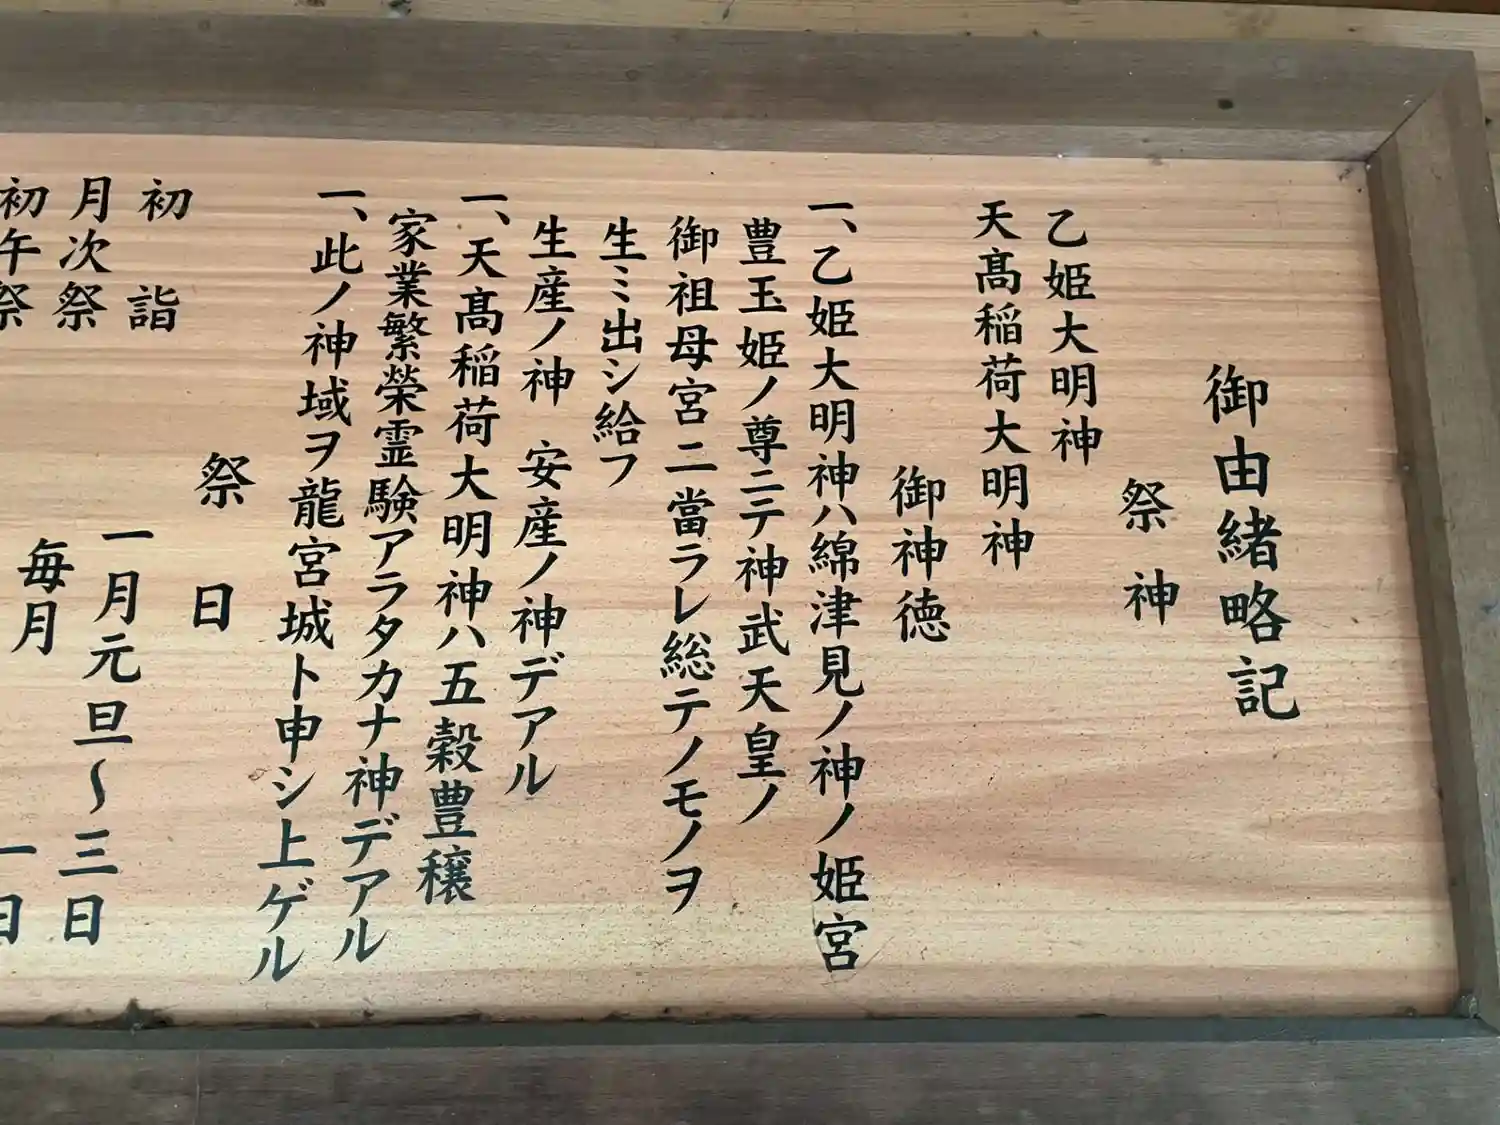 御由緒略記
祭神
乙姫大明神
天髙稲荷大明神
御神徳
一、乙姫大明神ハ綿津見ノ神ノ姫宮
豊玉姫ノ尊ニテ神武天皇ノ
御祖母宮ニ當ラレ総テノモノヲ
生ミ出シ給フ
生産ノ神　安産ノ神デアル
一、天髙稲荷大明神ハ五穀豊穣
家業繁榮霊験アラタカナ神デアル
一、此ノ神域ヲ龍宮城ト申シ上ゲル
祭日
初詣　一月元旦〜三日
月次祭　毎月　一日
初午祭